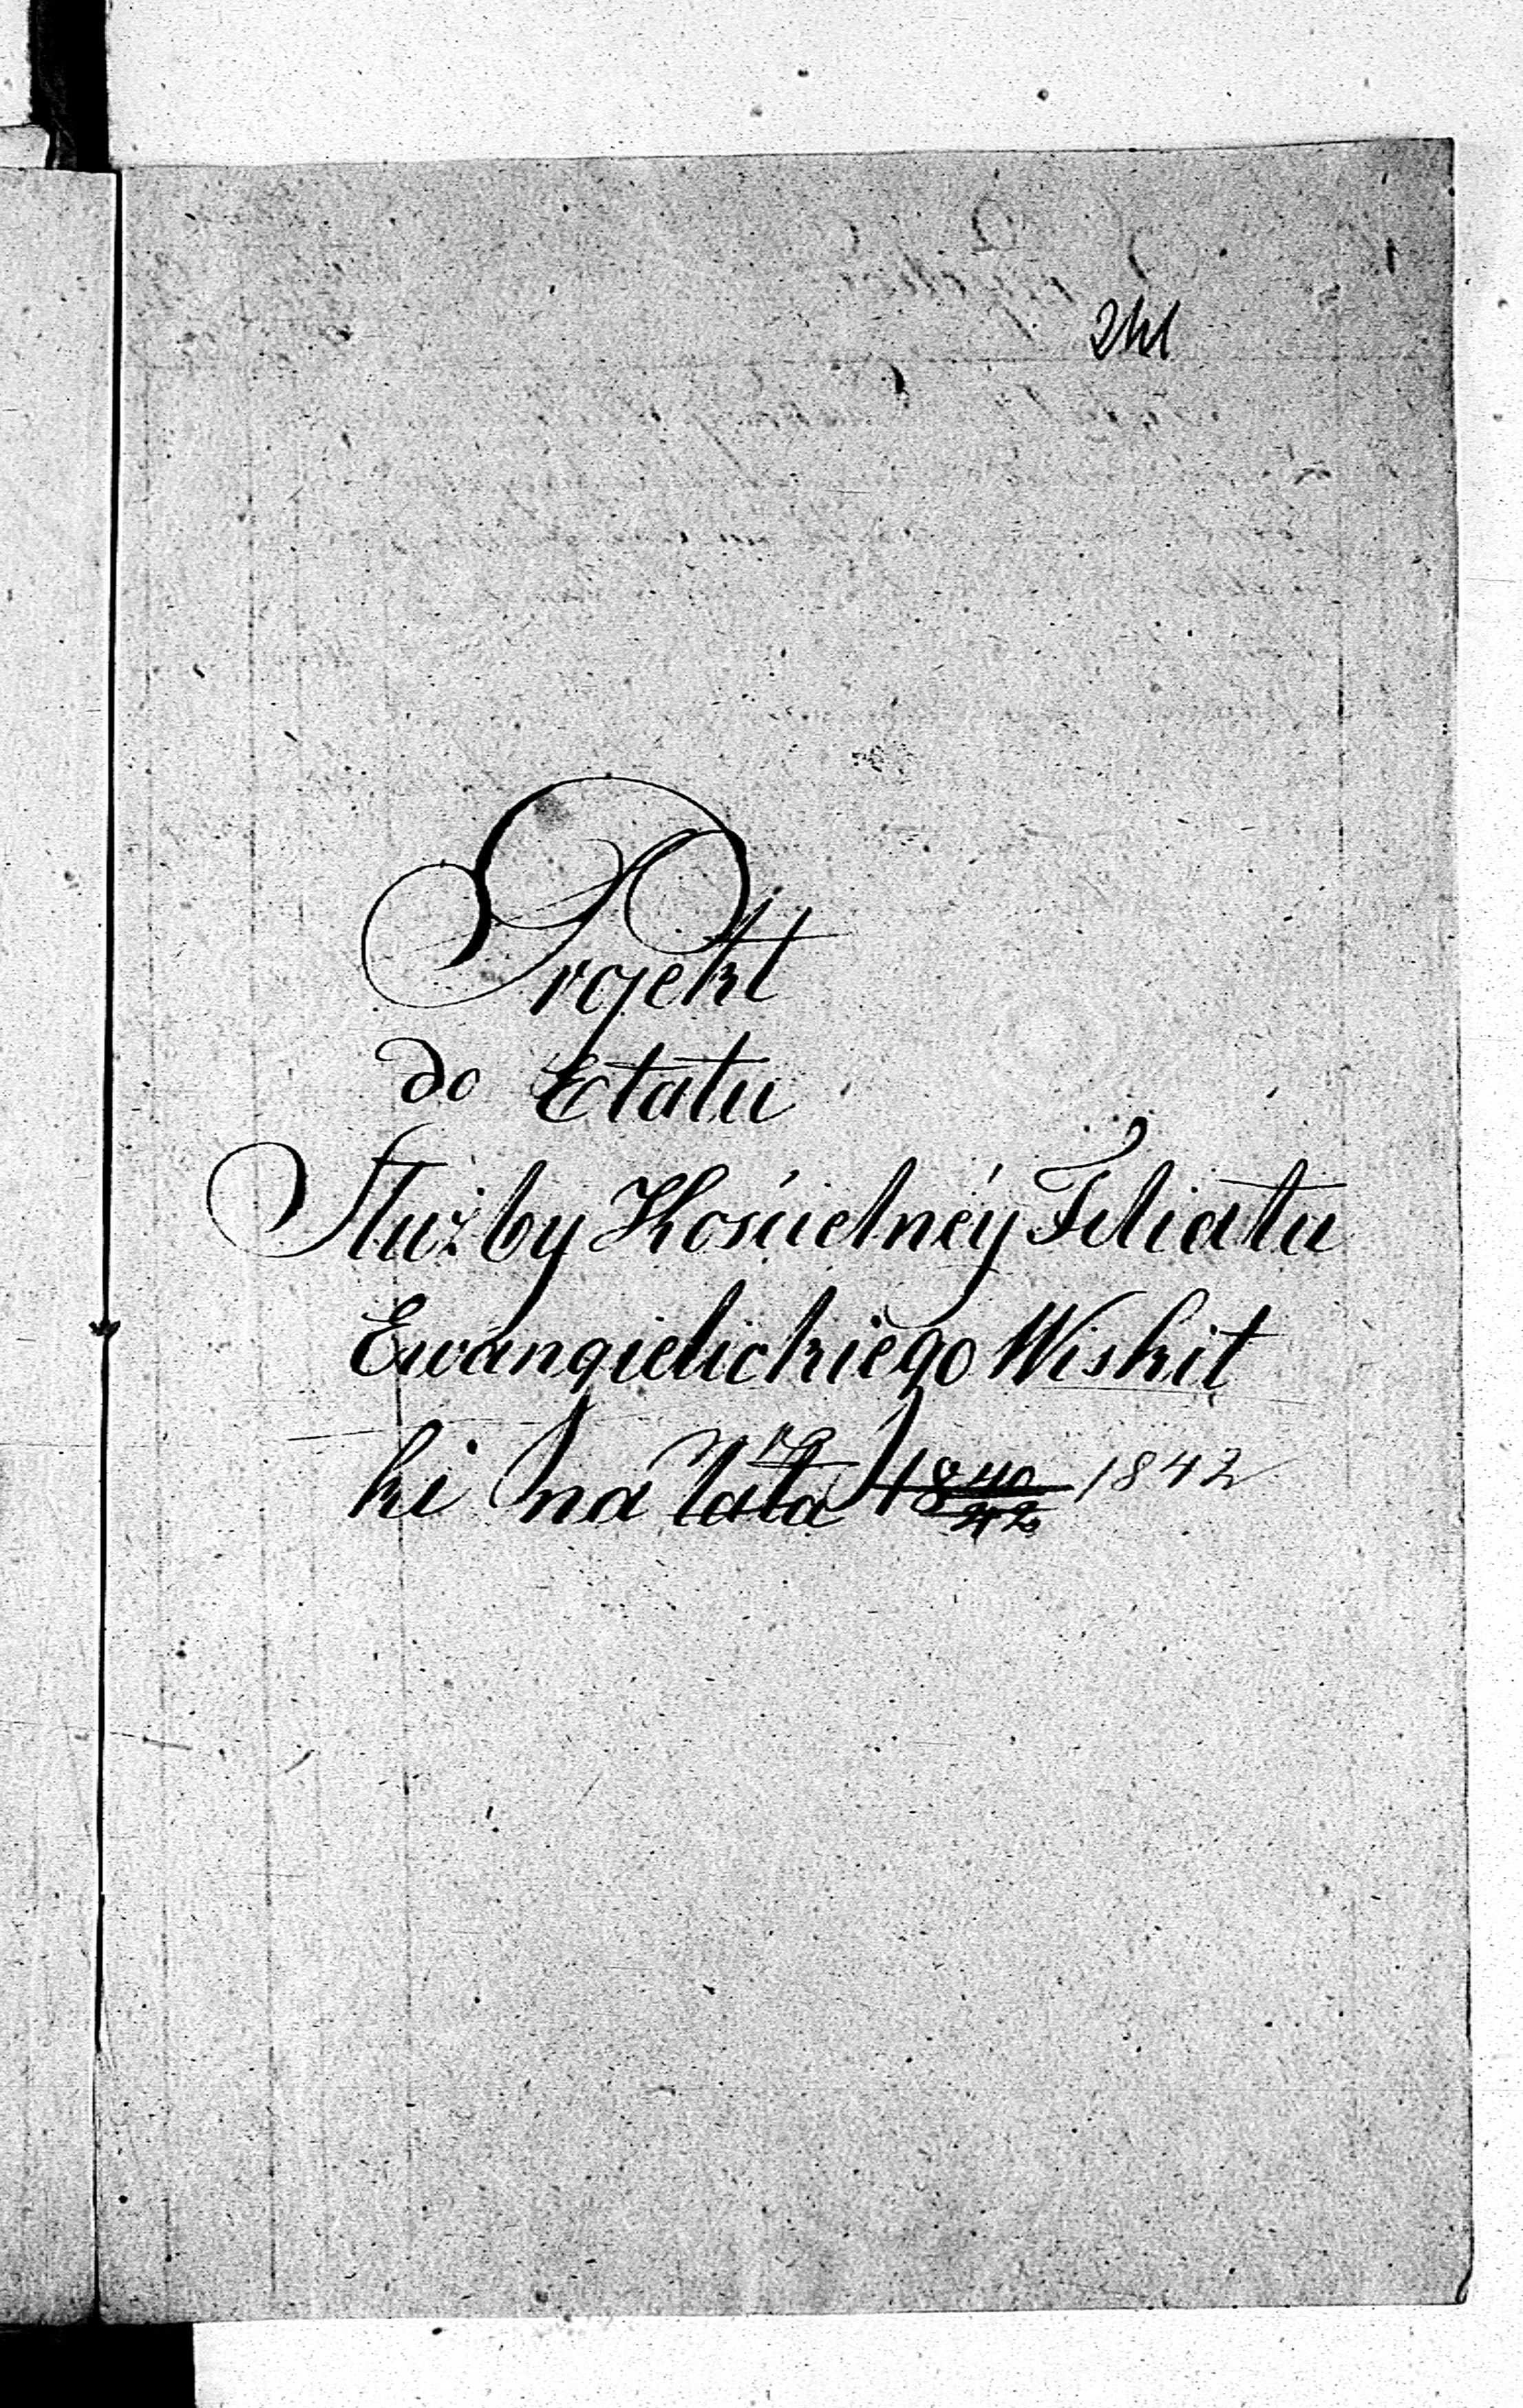 241
Projekt
do Etatu
Służby Kościelnéy Filiału
Ewangielickiego Wiskit
ki na lata 18 40/42 1842